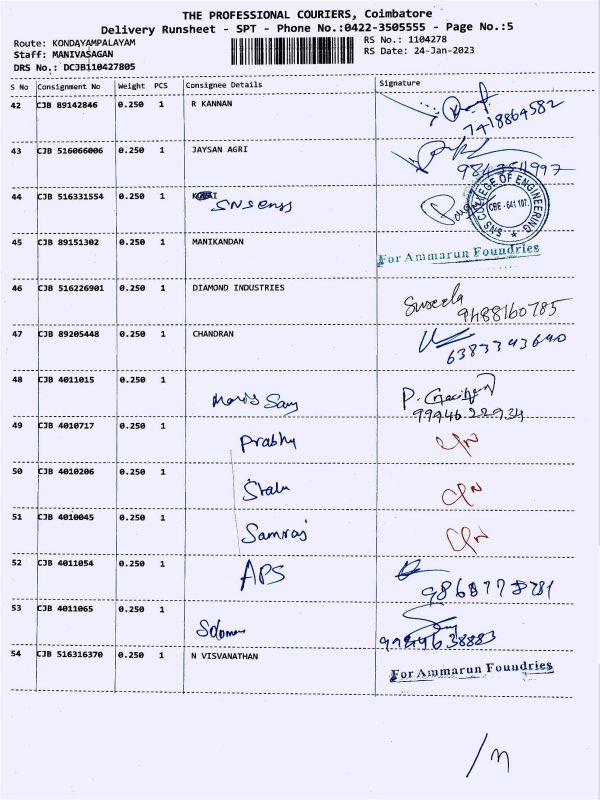 THE PROFESSIONAL COURIERS, Coimbatore
Delivery Runsheet - SPT - Phone No.:0422-3505555 - Page No.:5
Route: KONDAYAMPALAYAM RS No.: 1104278
Staff: MANIVASAGAN RS Date: 24-Jan-2023
DRS No.: DCJB110427805
S No Consignment No Weight PCS Consignee Details Signature
42 CJB 89142846 0.250 1 R KANNAN
7418864582
43 CJB 516066006 0.250 1 JAYSAN AGRI
44 CJB 516331554 0.250 1
SNS COLLEGE OF ENGINEERING
CBE - 641 107.
45 CJB 89151302 0.250 1 MANIKANDAN
For Ammarun Foundries
46 CJB 516226901 0.250 1 DIAMOND INDUSTRIES
Suseela
9488160785
47 CJB 89205448 0.250 1 CHANDRAN
6383393690
48 CJB 4011015 0.250 1
49 CJB 4010717 0.250 1
Prabhu
50 CJB 4010206 0.250 1
51 CJB 4010045 0.250 1
Samraj
52 CJB 4011054 0.250 1
APS
53 CJB 4011065 0.250 1
Solomon
54 CJB 516316370 0.250 1 N VISVANATHAN
For Ammarun Foundries